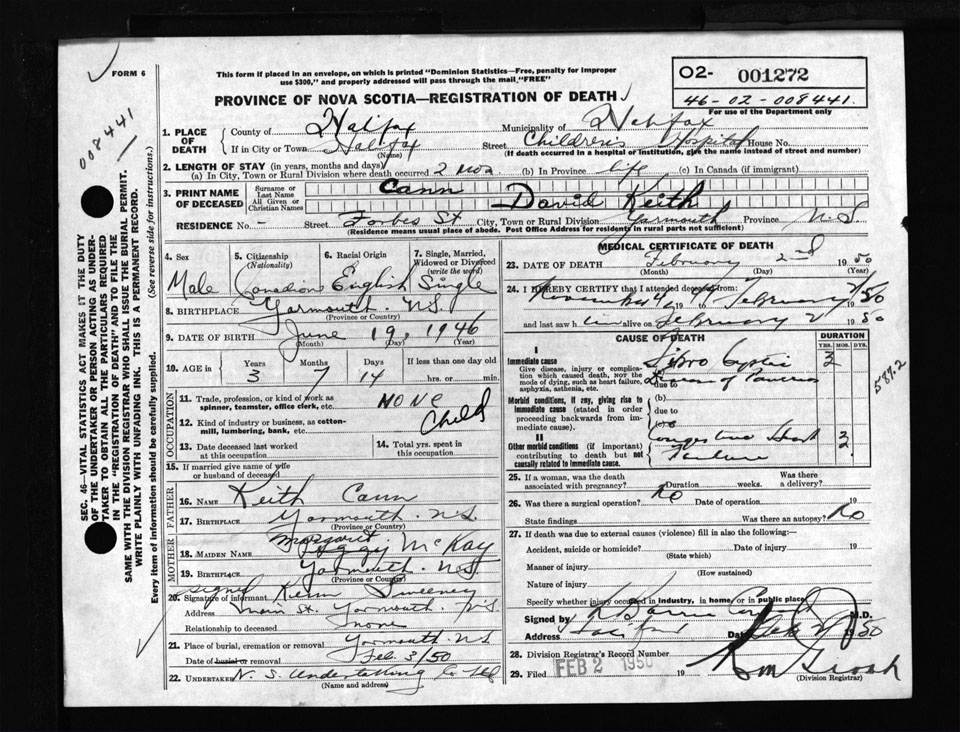 FORM 6
This form if placed in an envelope, on which is printed "Dominion Statistics—Free, penalty for improper
use $300," and properly addressed will pass through the mail, "FREE"
PROVINCE OF NOVA SCOTIA—REGISTRATION OF DEATH
O2- 001272
46-02-008441.
For use of the Department only
008441
1. PLACE OF DEATH
County of Halifax Municipality of Halifax
If in City or Town Halifax Street Children's Hospital House No.
(Name) (If death occurred in a hospital of institution, give the name instead of street and number)
2. LENGTH OF STAY (in years, months and days)
(a) In City, Town or Rural Division where death occurred 2 mos. (b) In Province life (c) In Canada (if immigrant)
3. PRINT NAME OF DECEASED
Surname or Last Name Cann
All Given or Christian Names David Keith
RESIDENCE No. - Street Forbes St City, Town or Rural Division Yarmouth Province N.S.
(Residence means usual place of abode. Post Office Address for residents in rural parts not sufficient)
4. Sex
Male
5. Citizenship (Nationality)
Canadian
6. Racial Origin
English
7. Single, Married, Widowed or Divorced (write the word)
Single
8. BIRTHPLACE Yarmouth N.S.
(Province or Country)
9. DATE OF BIRTH June 19, 1946
(Month) (Day) (Year)
10. AGE in Years Months Days If less than one day old
3 7 14 hrs. or min.
OCCUPATION
11. Trade, profession, or kind of work as
spinner, teamster, office clerk, etc. NONE
12. Kind of industry or business, as cotton-
mill, lumbering, bank, etc. Child
13. Date deceased last worked
at this occupation
14. Total yrs. spent in
this occupation
15. If married give name of wife
or husband of deceased
FATHER
16. NAME Keith Cann
17. BIRTHPLACE Yarmouth. N.S.
(Province or Country)
MOTHER
Margaret
18. MAIDEN NAME Peggy McKay
19. BIRTHPLACE Yarmouth N.S.
(Province or Country)
signed
20. Signature of informant Sweeney
Address Main St. Yarmouth. N.S.
Relationship to deceased none
21. Place of burial, cremation or removal Yarmouth N.S.
Date of burial or removal Feb. 3/50
22. UNDERTAKER N. S. Undertaking Co Ltd
(Name and address)
MEDICAL CERTIFICATE OF DEATH
23. DATE OF DEATH February 2nd 1950
(Month) (Day) (Year)
24. I HEREBY CERTIFY that I attended deceased from:
November 4 1949 February 2/50
and last saw him alive on February 2 1950
CAUSE OF DEATH
DURATION
YRS. MOS. DYS.
I
Immediate cause
Give disease, injury or complica-
tion which caused death, NOT the
mode of dying, such as heart failure,
asphyxia, asthenia, etc.
Fibro cystic 3
Disease of Pancreas
due to
Morbid conditions, if any, giving rise to
immediate cause (stated in order
proceeding backwards from im-
mediate cause).
(b)
due to
(c)
II
Other morbid conditions (if important)
contributing to death but not
causally related to immediate cause.
Congestive Heart
Failure
587.2
25. If a woman, was the death
associated with pregnancy? Duration weeks. Was there a delivery?
26. Was there a surgical operation? No Date of operation 19
State findings Was there an autopsy? No
27. If death was due to external causes (violence) fill in also the following:—
Accident, suicide or homicide? Date of injury 19
(State which)
Manner of injury
(How sustained)
Nature of injury
Specify whether injury occurred in industry, in home or in public place
Signed by M.D.
Address Halifax Date Feb 2 1950
28. Division Registrar's Record Number
29. Filed FEB 2 1950 19
(Division Registrar)
SEC. 46—VITAL STATISTICS ACT MAKES IT THE DUTY
OF THE UNDERTAKER OR PERSON ACTING AS UNDER-
TAKER TO OBTAIN ALL THE PARTICULARS REQUIRED
IN THE "REGISTRATION OF DEATH" AND TO FILE THE
SAME WITH THE DIVISION REGISTRAR WHO SHALL ISSUE THE BURIAL PERMIT.
WRITE PLAINLY WITH UNFADING INK. THIS IS A PERMANENT RECORD.
Every item of information should be carefully supplied. (See reverse side for instructions.)